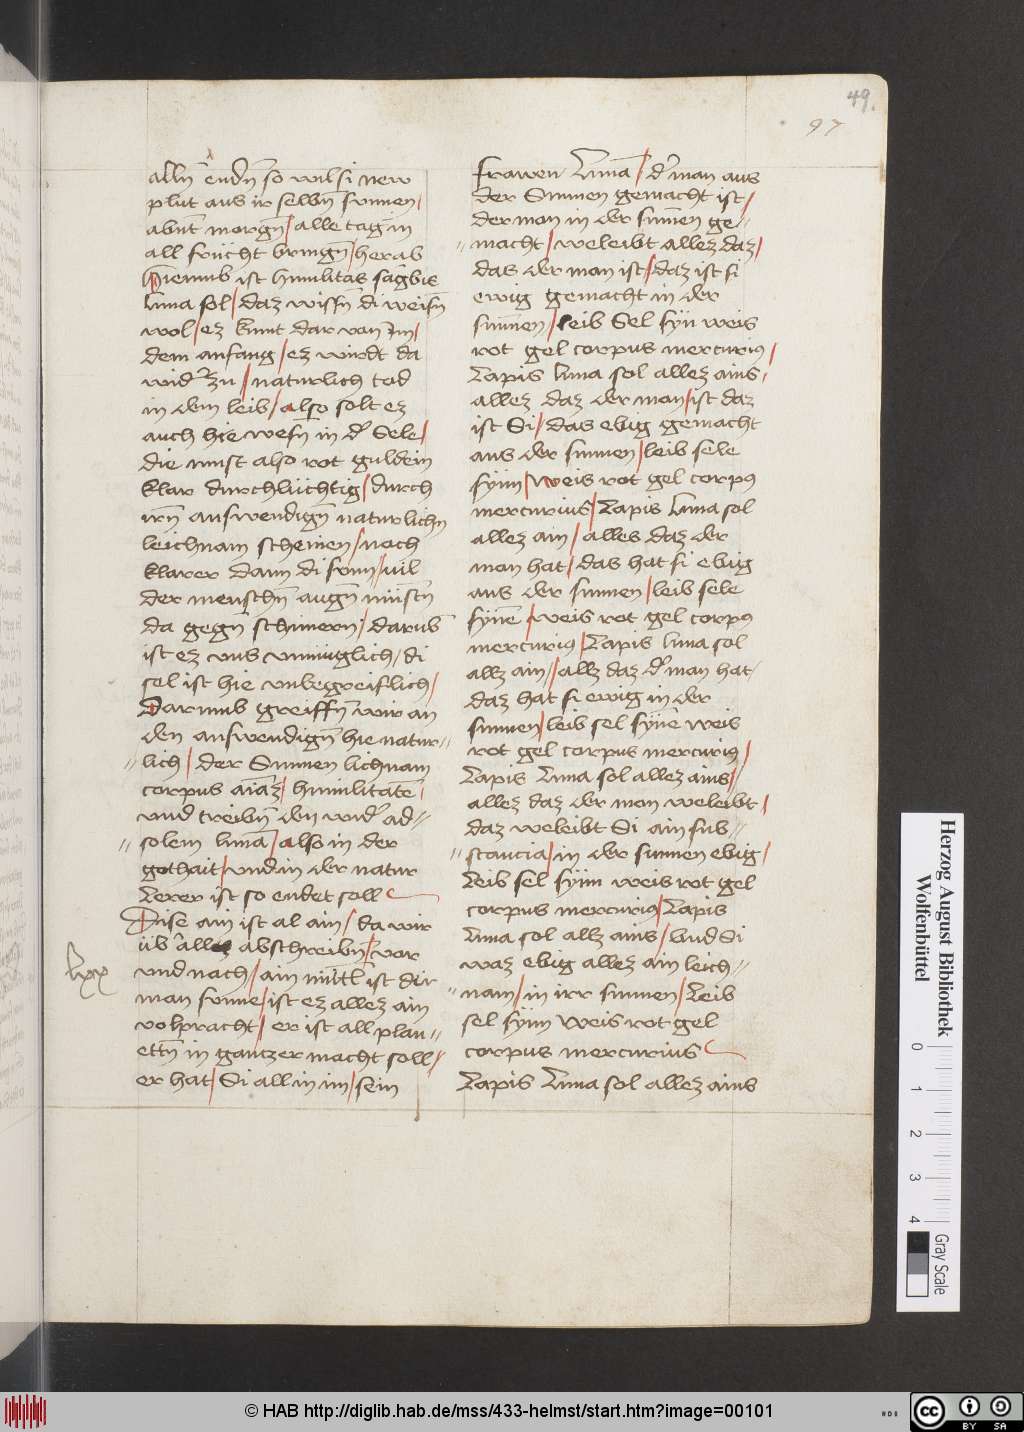 49.
97
alln̄ endn̄ so wil si new
plut aus ir selbn̄ sunnen /
abn̄t morgn̄ / alle tag in
all frücht bringn̄ / herab
hiemub ist humilitas sagbis
luna sol / daz wissn̄ di weisn̄
wol / ez kumt dar von im /
dem anfang / ez wirdt da
wider zu / naturlich tod
in dem leib / also solt ez
auch hie wesn̄ in der Sele /
die must also rot guldein
klar durchlüchtig / durch
irn̄ auswendign̄ naturlichn
leichnam scheinen / noch
klarer dann di sunn / uil
der menschn̄ augn̄ müstn̄
da gegn̄ schimern / darub̄
ist ez uns unmüglich / di
sel ist hie unbegreiflich /
Darumb greiffn̄ wir an
den auswendign̄ hie natur //
// lich / der Sunnen lichnam
corpus aīaz / humilitatē /
und treibn̄ den wider ad //
// solem lunā / also in der
gothait / und in der natur
Lerer ist so endet soll
Dise ain ist al ain / da wir
üb allez abschreibn̄ / vor
lxx
und nach / ain mittl ist dir
man sunne / ist ez allez ain
volpracht / er ist all plan //
etn̄ in gantzer macht soll /
er hat / Si all in im / sein
frawen Lunā / der man aus
der Sunnen gemacht ist /
der mon in der sunnen ge //
// macht / weleibt allez daz /
das der man ist / daz ist si
ewig gemacht in der
sunnen / leib Sel fyn weis
rot gel corpus mercurius /
Lapis luna sol allez ains /
allez daz der man / ist daz
ist Si / das ebig gemacht
aus der sunnen / leib sele
fym / weis rot gel corpus
mercurius / Lapis luna sol
allez ain / alles daz der
man hat / das hat si ebig
aus der sunnen / leib sele
fyne / weis rot gel corpus
mercurius / Lapis luna sol
allz ain / allz daz der man hat /
daz hat si ewig in der
sunnen / leib sel fyne weis
rot gel corpus mercurius /
Lapis Luna sol allez ains /
allez daz der mon weleibt /
daz weleibt Si ain sub //
// stancia / in der sunnen ebig /
Leib sel fyim weis rot gel
corpus mercurius / Lapis
Luna sol allz ains / und Si
waz ebig allez ain leich //
// nam / in irr sunnen / Leib
sel fyim weis rot gel
corpus mercurius
Lapis Luna sol allez ains
Herzog August Bibliothek
Wolfenbüttel
0 1 2 3 4
Gray Scale
© HAB http://diglib.hab.de/mss/433-helmst/start.htm?image=00101
HAB
cc BY SA